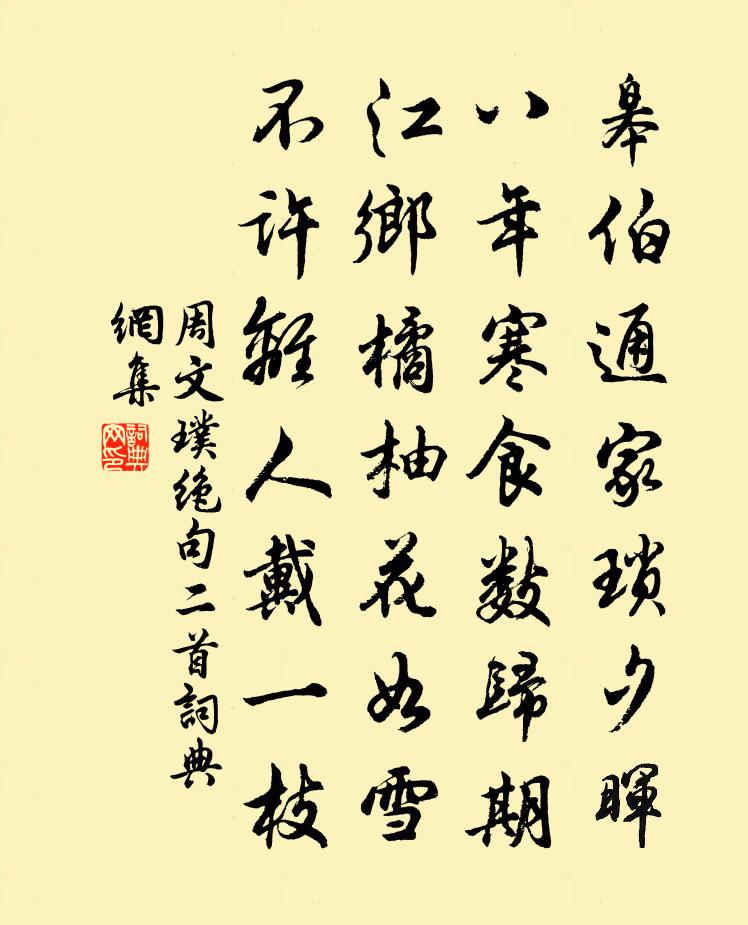 皋伯通家瑣夕暉
八年寒食數歸期
江鄉橘柚花如雪
不許離人戴一枝
周文璞絶句二首詞典
網集
詞典网印